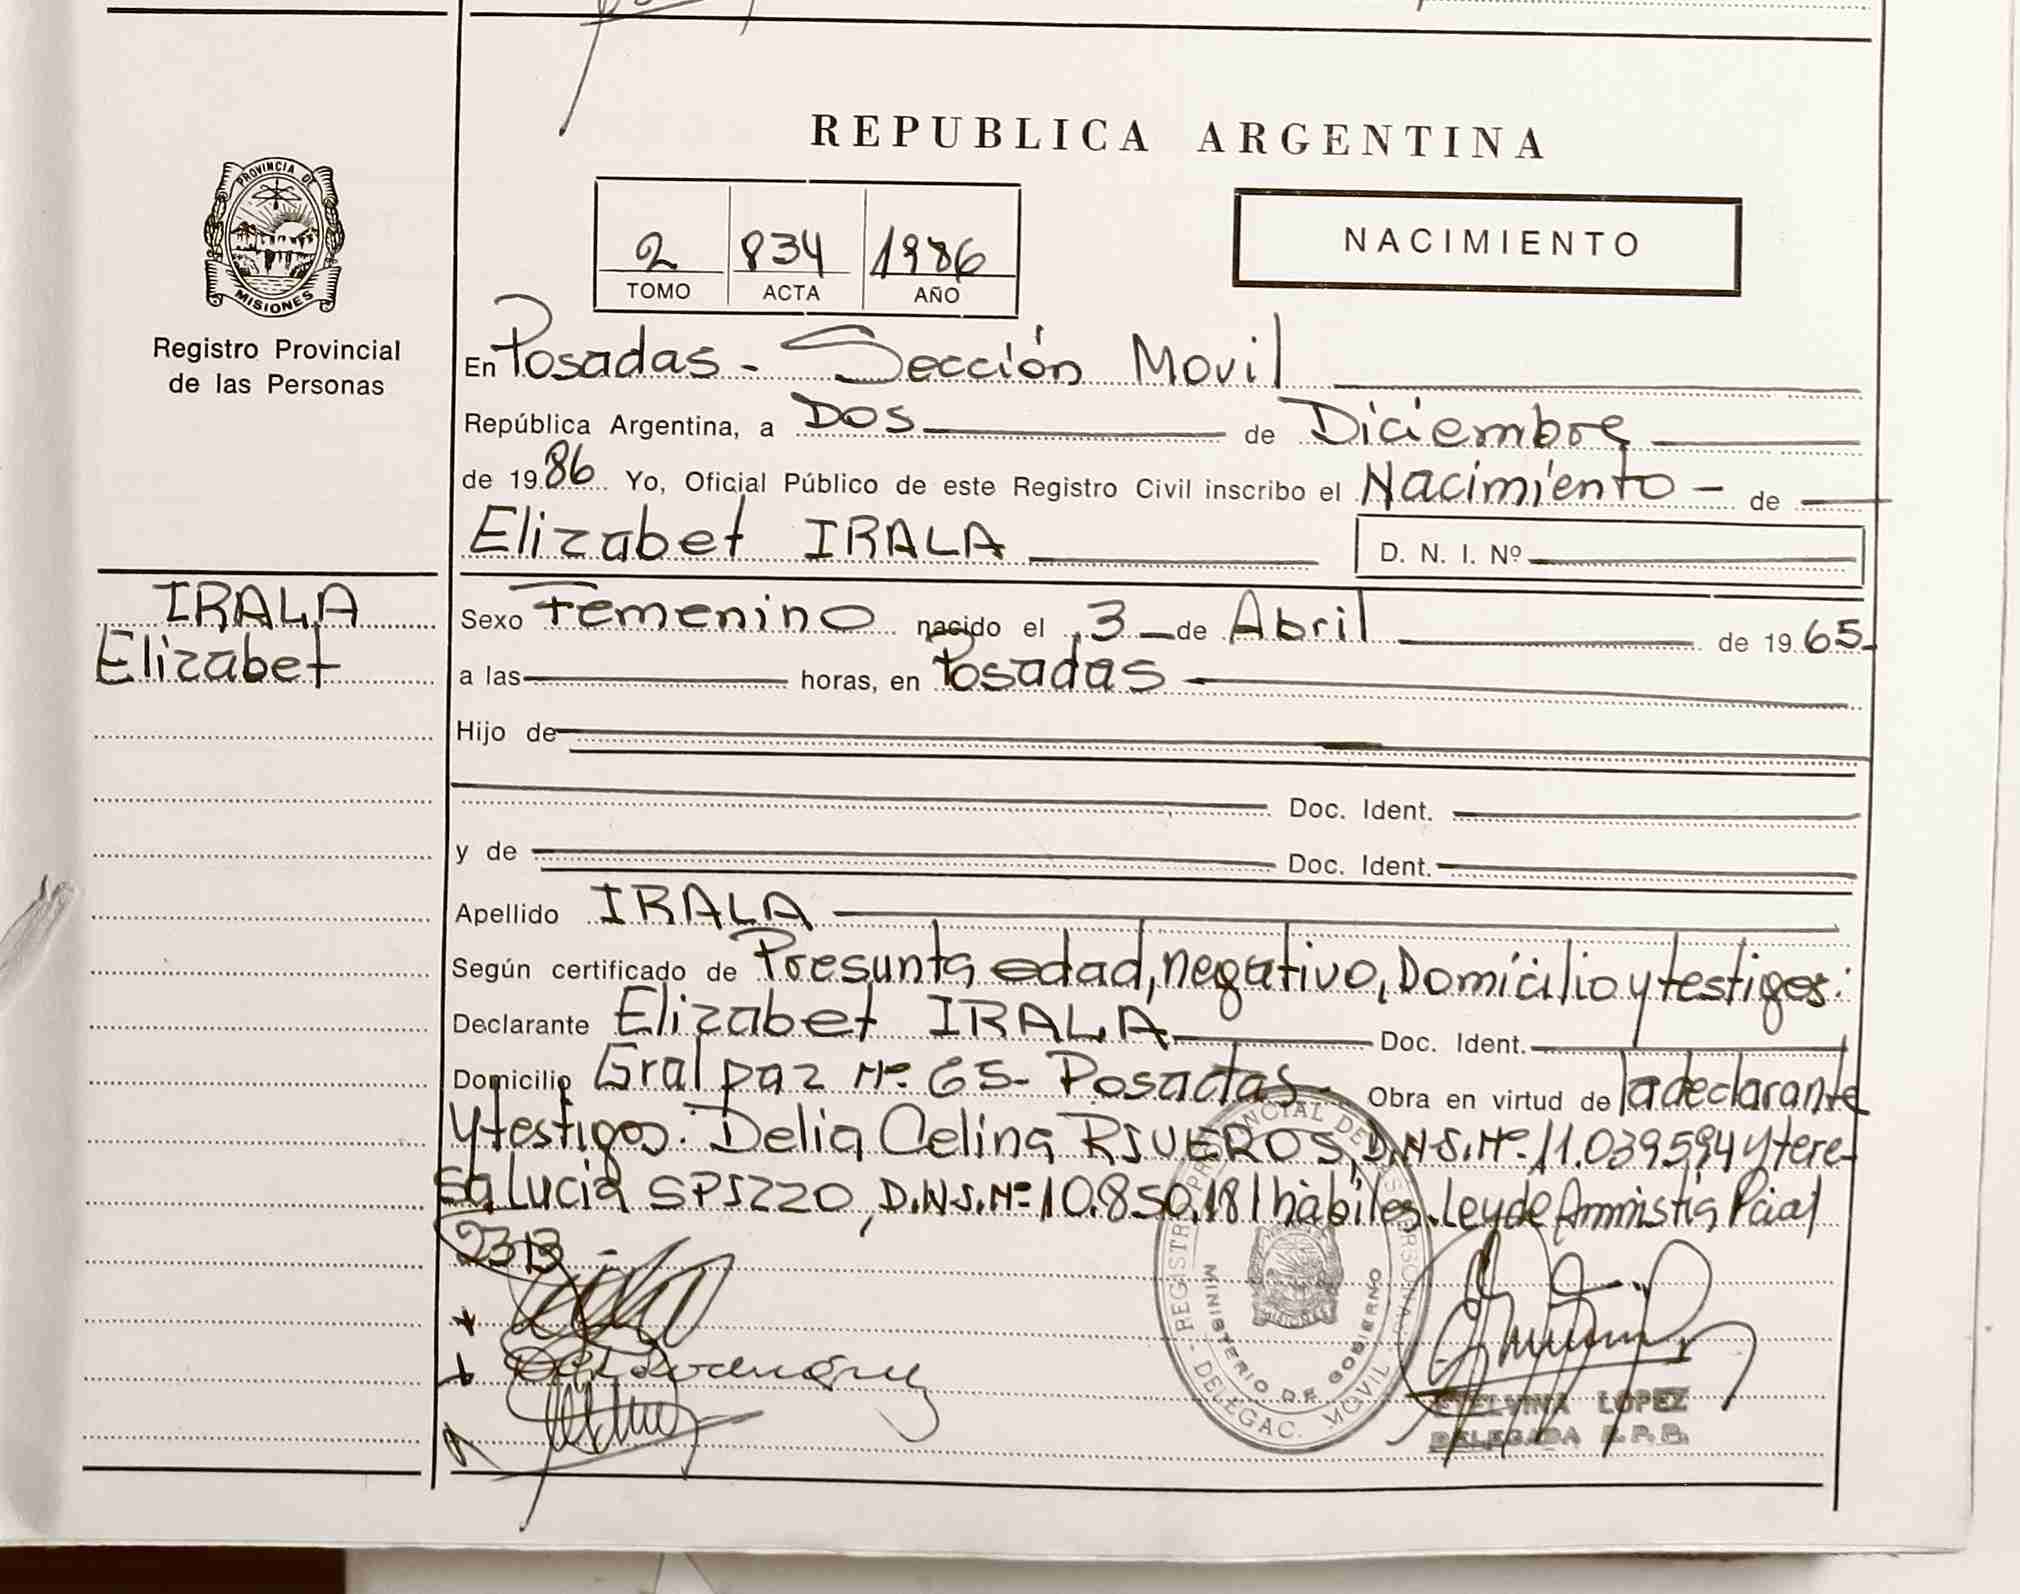 REPUBLICA ARGENTINA
PROVINCIA DE
MISIONES
Registro Provincial
de las Personas
2 834 1986
TOMO ACTA AÑO
NACIMIENTO
En Posadas - Sección Movil
República Argentina, a Dos de Diciembre
de 1986 Yo, Oficial Público de este Registro Civil inscribo el Nacimiento - de
Elizabet IRALA D. N. I. Nº
IRALA
Elizabet
Sexo Femenino nacido el 3 de Abril de 1965
a las horas, en Posadas
Hijo de
Doc. Ident.
y de Doc. Ident.
Apellido IRALA
Según certificado de Presunta edad, negativo, Domicilio y testigos:
Declarante Elizabet IRALA Doc. Ident.
Domicilio Gral paz Nº 65- Posadas Obra en virtud de la declarante
y testigos. Delia Celina RIVEROS, D.N.I.Nº 11.039594 y tere-
sa Lucia SPIZZO, D.N.I.Nº 10.850.181 hàbiles. Ley de Amnistia Pcial
2313
REGISTRO PROVINCIAL DE LAS PERSONAS
MINISTERIO DE GOBIERNO
DELEGAC. MOVIL
ETELVINA LOPEZ
DELEGADA R.P.P.